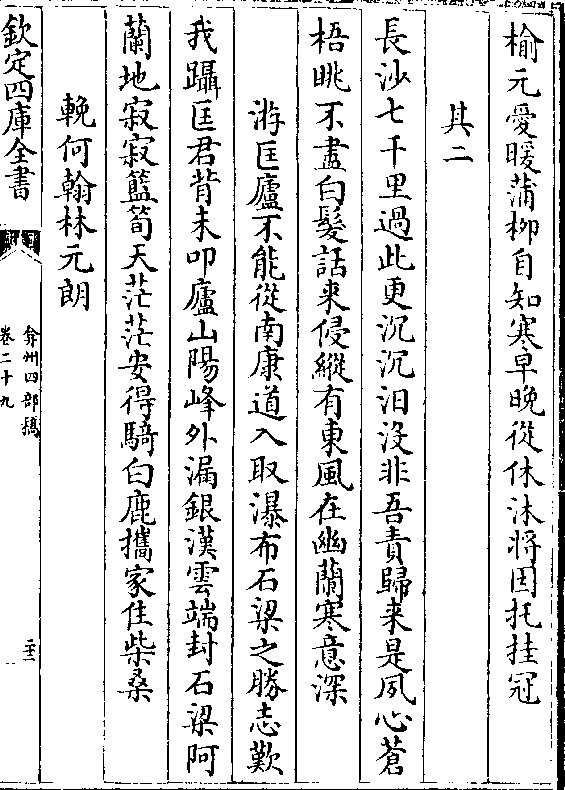 榆元愛暖蒲柳自知寒早晚從休沐將因托挂冠
其二
長沙七千里過此更沉沉汨沒非吾責歸来是夙心蒼
梧眺不盡白髪話來侵縱有東風在幽蘭寒意深
游匡廬不能從南康道入取瀑布石梁之勝志歎
我躡匡君背未叩廬山陽峰外漏銀漢雲端封石梁阿
蘭地寂寂籃筍天茫茫安得騎白鹿攜家住柴桑
輓何翰林元朗
欽定四庫全書
弇州四部稿
卷二十九
二十二